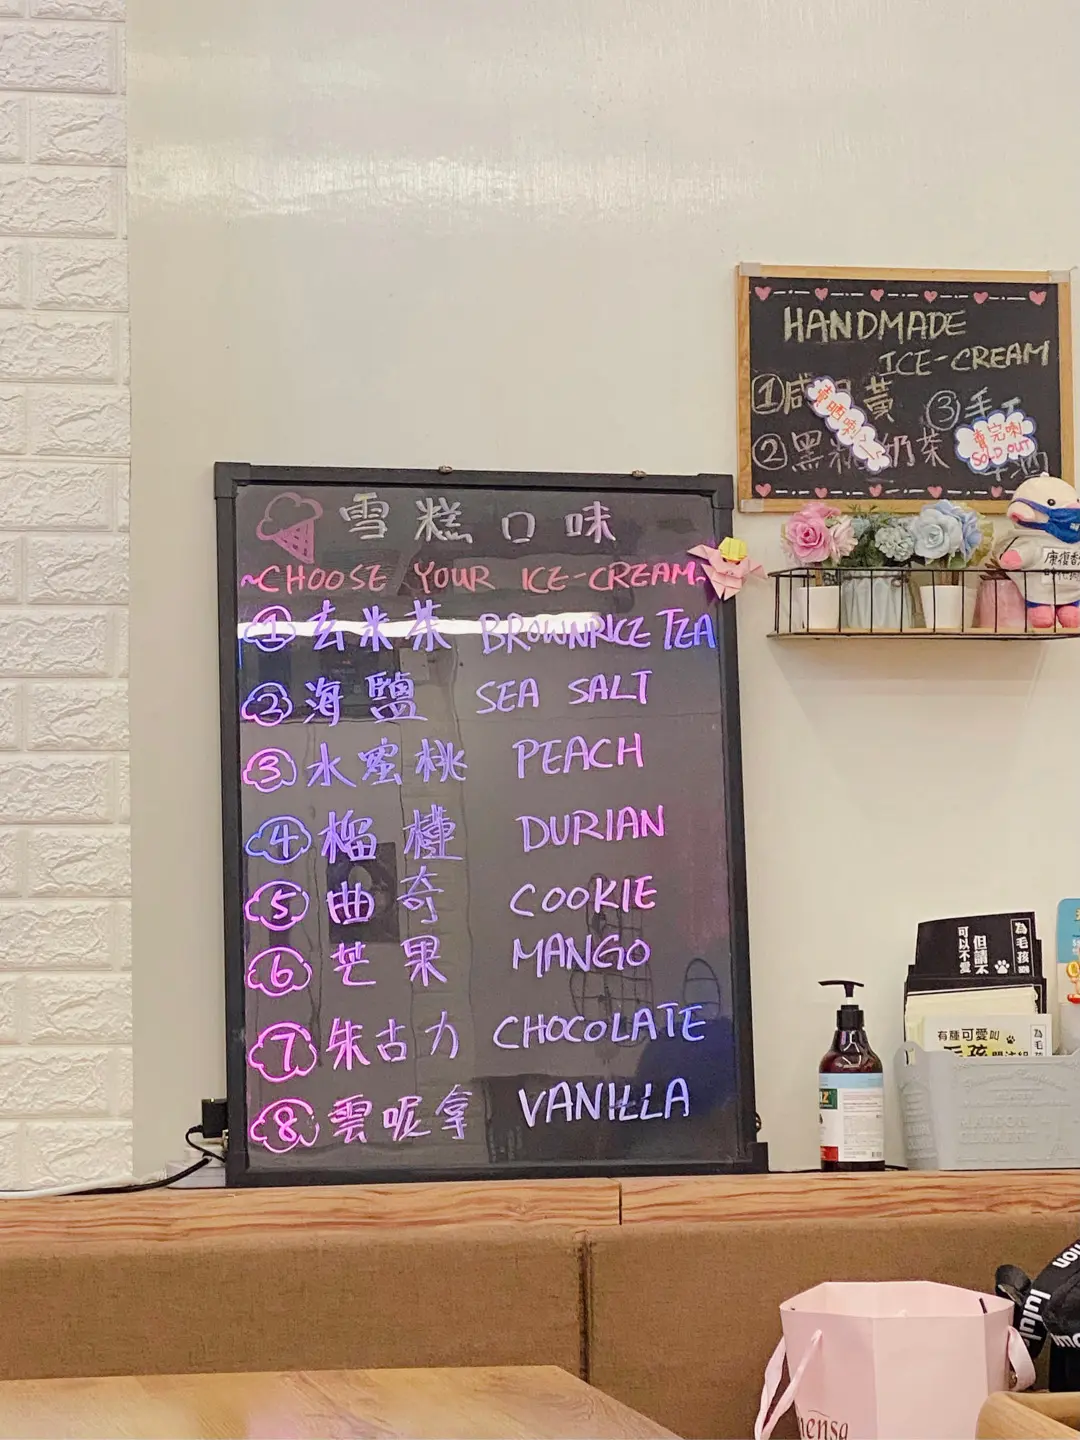 HANDMADE
ICE-CREAM
①咸 黃 ③手工
②黑 奶茶
賣晒喇
賣完喇
SOLD OUT
雪糕口味
~CHOOSE YOUR ICE-CREAM~
① 玄米茶 BROWNRICE TEA
② 海鹽 SEA SALT
③ 水蜜桃 PEACH
④ 榴槤 DURIAN
⑤ 曲奇 COOKIE
⑥ 芒果 MANGO
⑦ 朱古力 CHOCOLATE
⑧ 雲呢拿 VANILLA
康復香
為毛孩
但請不
可以不愛
有種可愛叫
毛孩
為毛
lulul